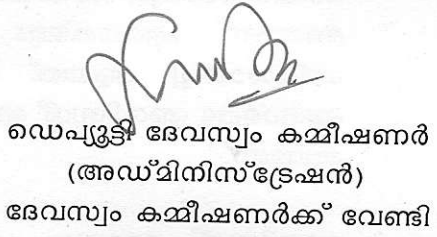 ഡെപ്യൂട്ടി ദേവസ്വം കമ്മീഷണർ
(അഡ്മിനിസ്ട്രേഷൻ)
ദേവസ്വം കമ്മീഷണർക്ക് വേണ്ടി